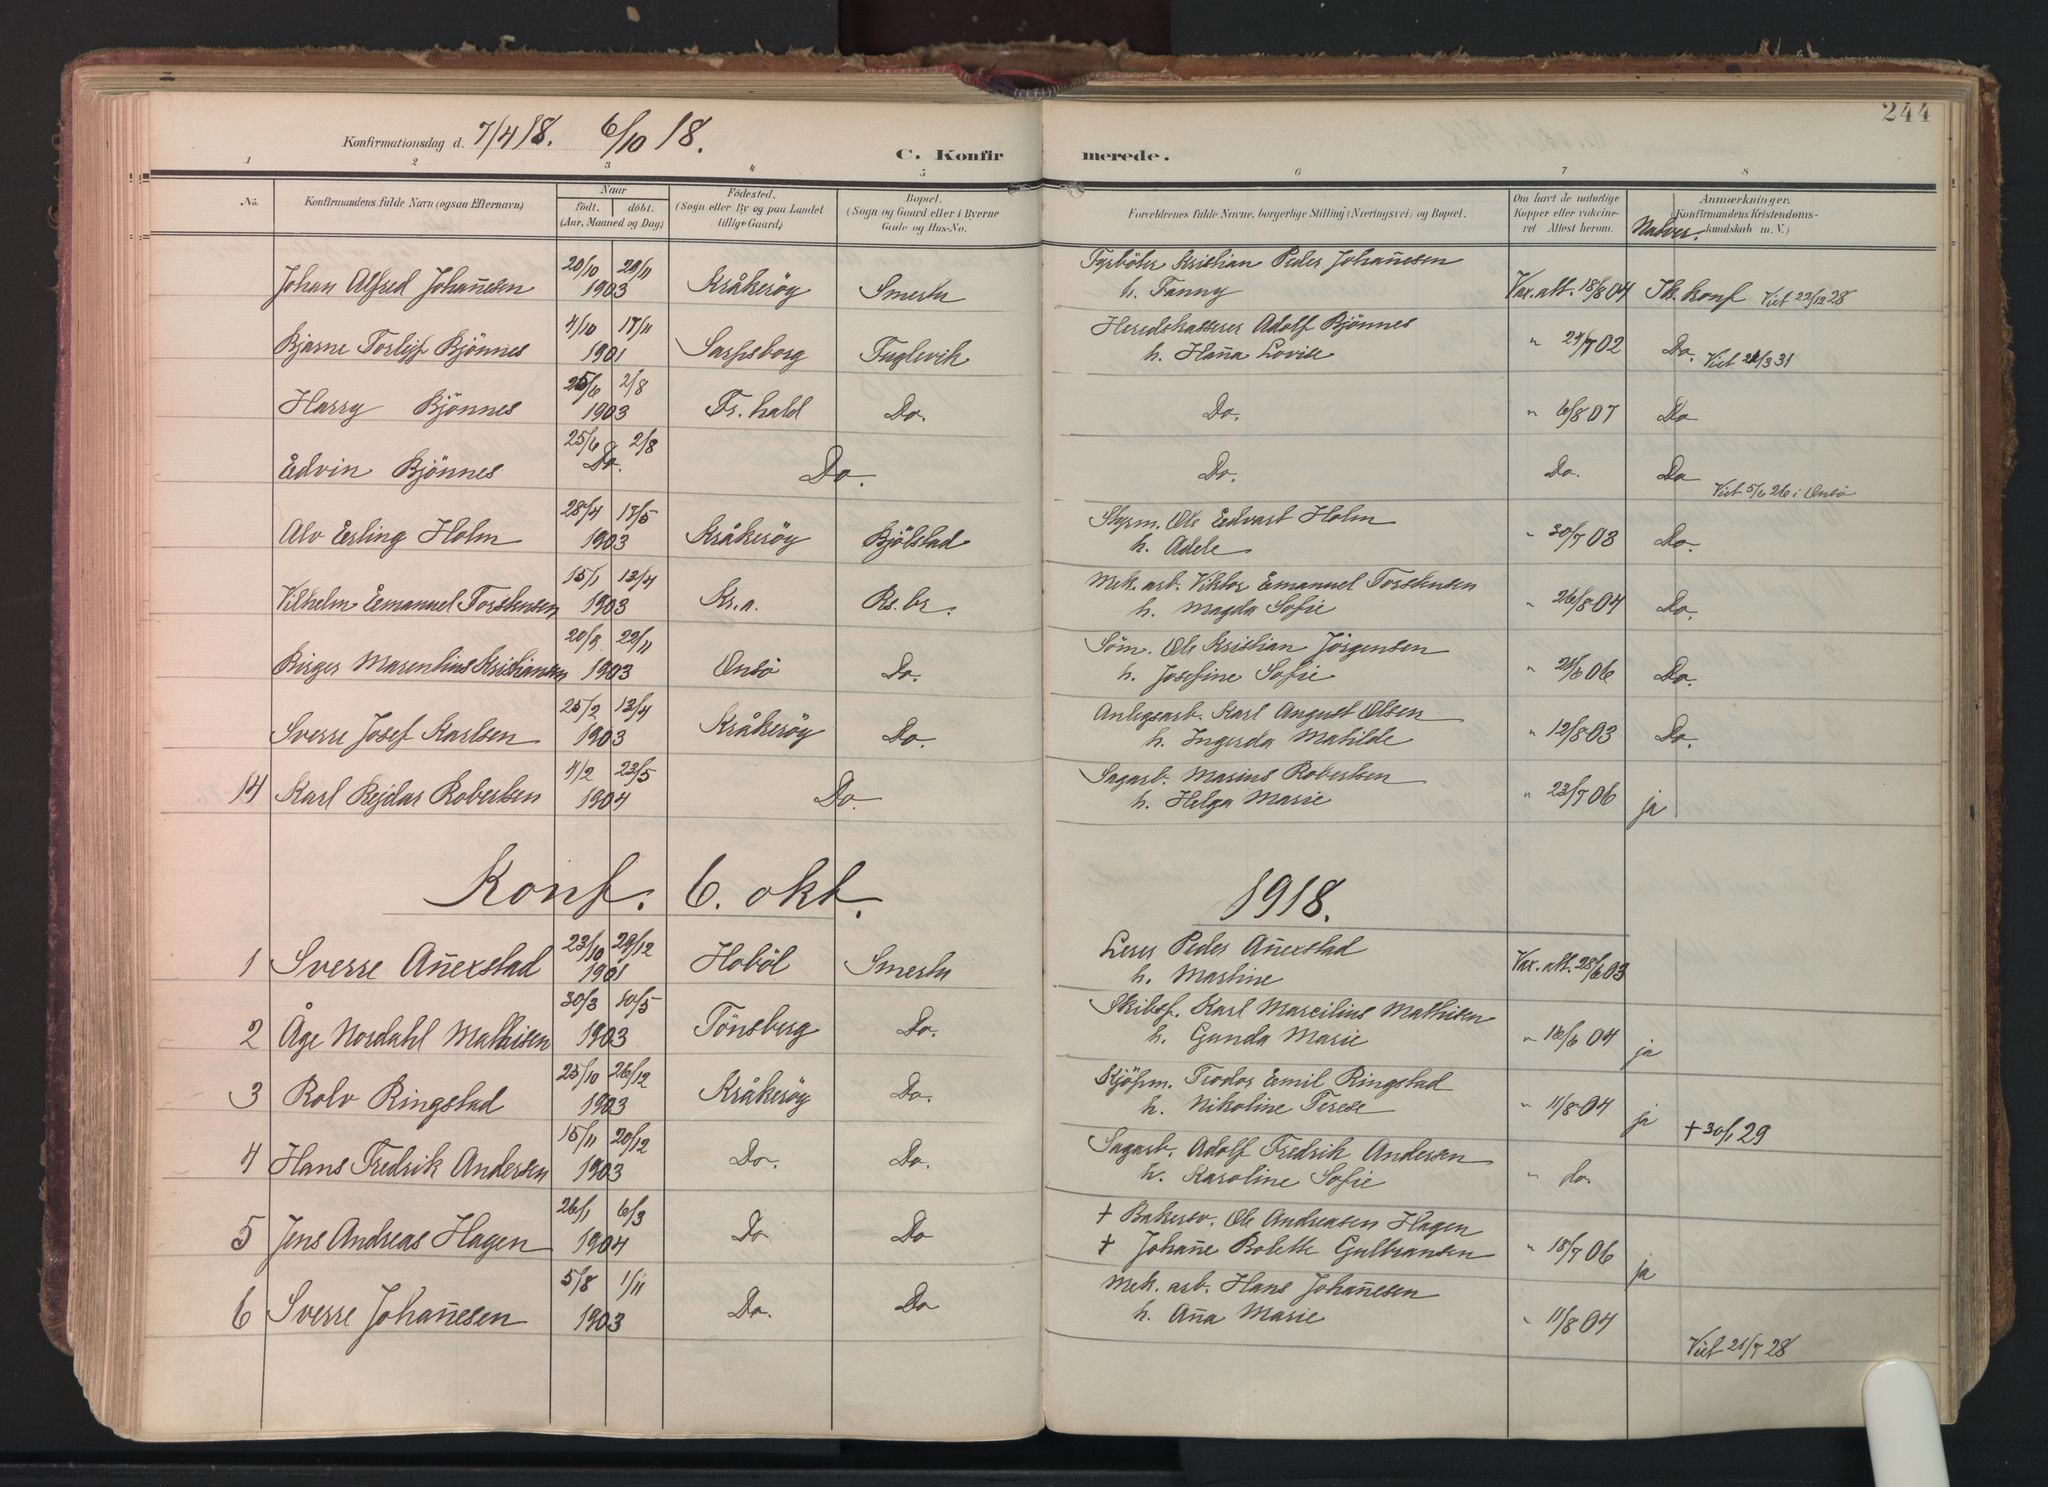 244
Konfirmationsdag d. 7/4 18. 6/10 18.
C. Konfirmerede.
1 2 3 4 5 6 7 8
No.
Konfirmandens fulde Navn (ogsaa Efternavn)
Naar
født. døbt.
(Aar, Maaned og Dag)
Fødested.
(Sogn eller By og paa Landet
tillige Gaard)
Bopæl.
(Sogn og Gaard eller i Byerne
Gade og Hus-No.
Forældrenes fulde Navne, borgerlige Stilling (Næringsvei) og Bopæl.
Om havt de naturlige
Kopper eller vakcine-
ret Attest herom.
Anmærkninger.
Konfirmandens Kristendoms-
kundskab m. V.)
Nadver.
Johan Alfred Johan̄esen 20/10 29/11 1903 Kråkerøy Smertu
Fyrböter Kristian Peder Johan̄esen
h. Fanny Vax. att. 18/8 04 Th. konf Viet 22/12 28
Bjarne Torleif Bjönnes 4/10 17/11 1901 Sarpsborg Fuglevik
Heredskasserer Adolf Bjönnes
h. Han̄a Lovise " 29/7 02 Do. Viet 21/3 31
Harry Bjönnes 25/6 2/8 1903 Fr.hald Do.
Do. " 6/8 07 Do
Edvin Bjönnes 25/6 2/8 Do. Do.
Do. Do. Do
Viet 5/6 26 i Onsö
Alv Erling Holm 28/4 17/5 1903 Kråkerøy Bjölstad
Styrm. Ole Edvart Holm
h. Adele " 30/7 03 Do.
Vilhelm Emanuel Torstensen 15/1 13/4 1903 Kr.a. Rs.br.
Mek. arb. Viktor Emanuel Torstensen
h. Magda Sofie " 26/8 04 Do.
Birger Marentius Kristiansen 20/8 22/11 1903 Onsö Do.
Söm. Ole Kristian Jörgensen
h. Josefine Sofie " 21/6 06 Do.
Sverre Josef Karlsen 25/2 13/4 1903 Kråkerøy Do.
Anlegsarb. Karl August Olsen
h. Ingerda Matilde " 12/8 03 Do.
14 Karl Rejdar Robertsen 4/2 23/5 1904 Do.
Sagarb. Marius Robertsen
h. Helga Marie " 23/7 06 ja
Konf. 6. okt. 1918.
1 Sverre An̄exstad 23/10 29/12 1901 Hoböl Smertu
Lerer Peder An̄exstad
h. Martine Vax. att. 28/6 03
2 Åge Nordahl Mathisen 30/3 10/5 1903 Tönsberg Do.
Skibsf. Karl Marcilius Mathisen
h. Gunda Marie " 16/6 04 ja
3 Rolv Ringstad 25/10 26/12 1903 Kråkerøy Do.
Kjöpm. Teodor Emil Ringstad
h. Nikoline Terese " 11/8 04 ja
+ 30/1 29
4 Hans Fredrik Andersen 15/11 20/12 1903 Do. Do.
Sagarb. Adolf Fredrik Andersen
h. Karoline Sofie " do.
5 Jens Andreas Hagen 26/1 6/3 1904 Do Do
+ Bakersv. Ole Andreasen Hagen
+ Johan̄e Bolette Gulbransen " 18/7 06 ja
6 Sverre Johan̄esen 5/8 1/11 1903 Do. Do
Mek. arb. Hans Johan̄esen
h. An̄a Marie " 11/8 04
Viet 21/7 28